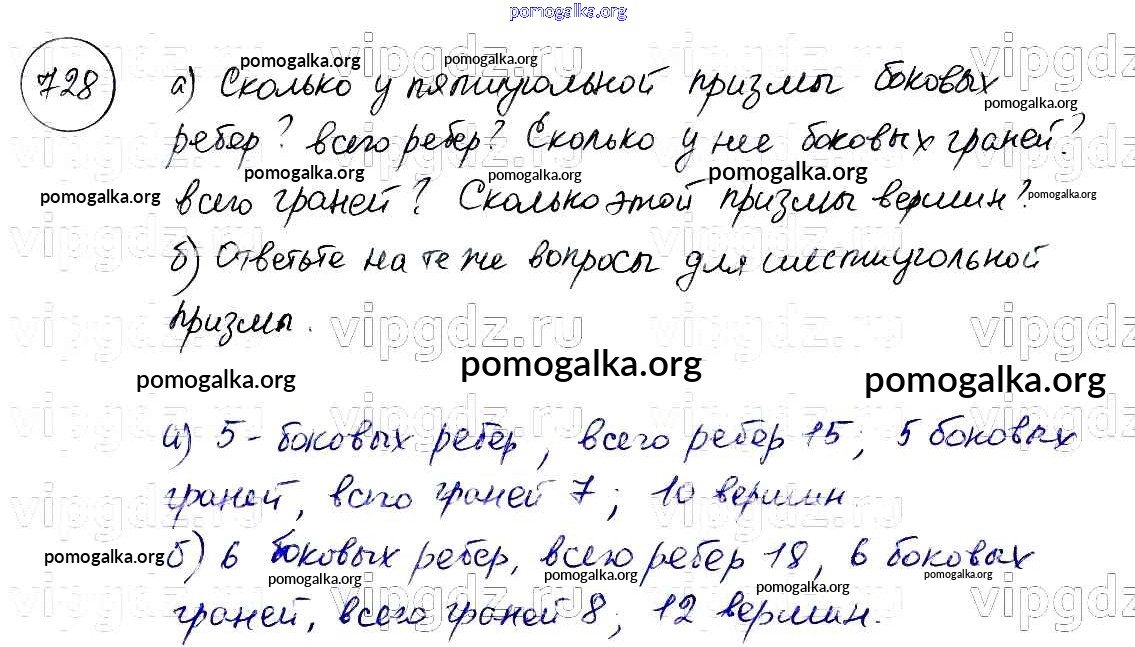 pomogalka.org
728
а) Сколько у пятиугольной призмы боковых
ребер? всего ребер? Сколько у нее боковых граней?
всего граней? Сколько этой призмы вершин?
б) Ответьте на те же вопросы для шестиугольной
призмы.
pomogalka.org pomogalka.org pomogalka.org
а) 5 - боковых ребер, всего ребер 15; 5 боковых
граней, всего граней 7; 10 вершин
б) 6 боковых ребер, всего ребер 18, 6 боковых
граней, всего граней 8; 12 вершин.
vipgdz.ru